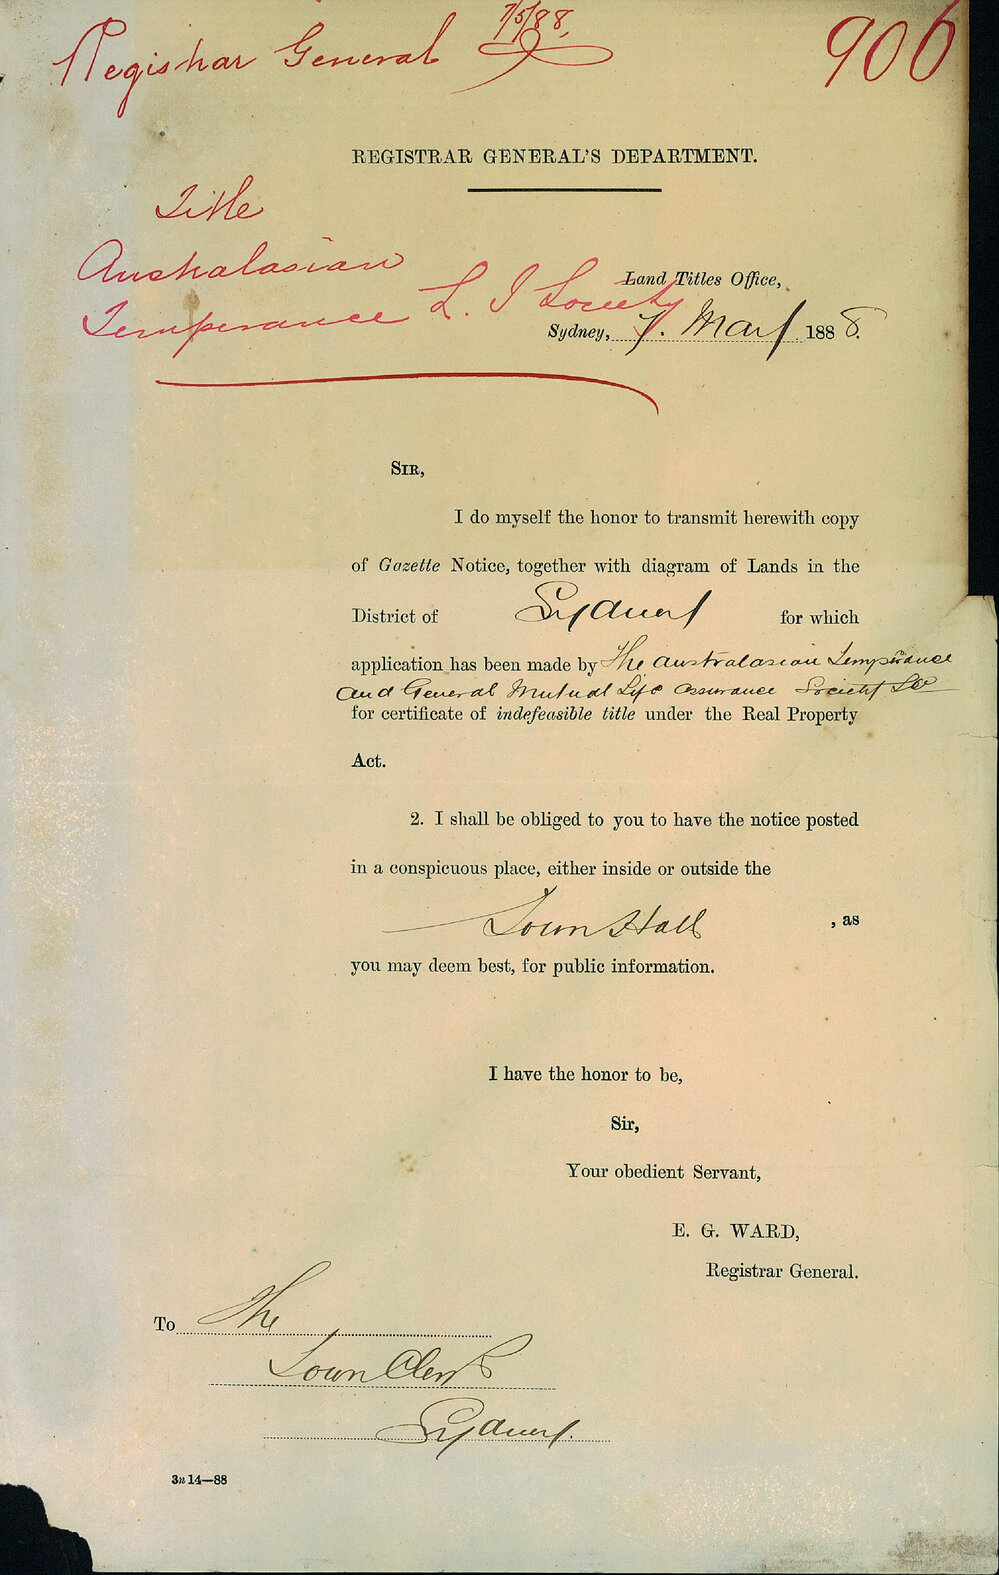 Registrar General 7/5/88.
906
REGISTRAR GENERAL'S DEPARTMENT.
Title
Australasian
Temperance L. I Society
Land Titles Office,
Sydney, 7. May 1888.
SIR,
I do myself the honor to transmit herewith copy
of Gazette Notice, together with diagram of Lands in the
District of Sydney for which
application has been made by The Australasian Temperance
and General Mutual Life Assurance Society Ld
for certificate of indefeasible title under the Real Property
Act.
2. I shall be obliged to you to have the notice posted
in a conspicuous place, either inside or outside the
Town Hall , as
you may deem best, for public information.
I have the honor to be,
Sir,
Your obedient Servant,
E. G. WARD,
Registrar General.
To The
Town Clerk
Sydney.
3n 14—88